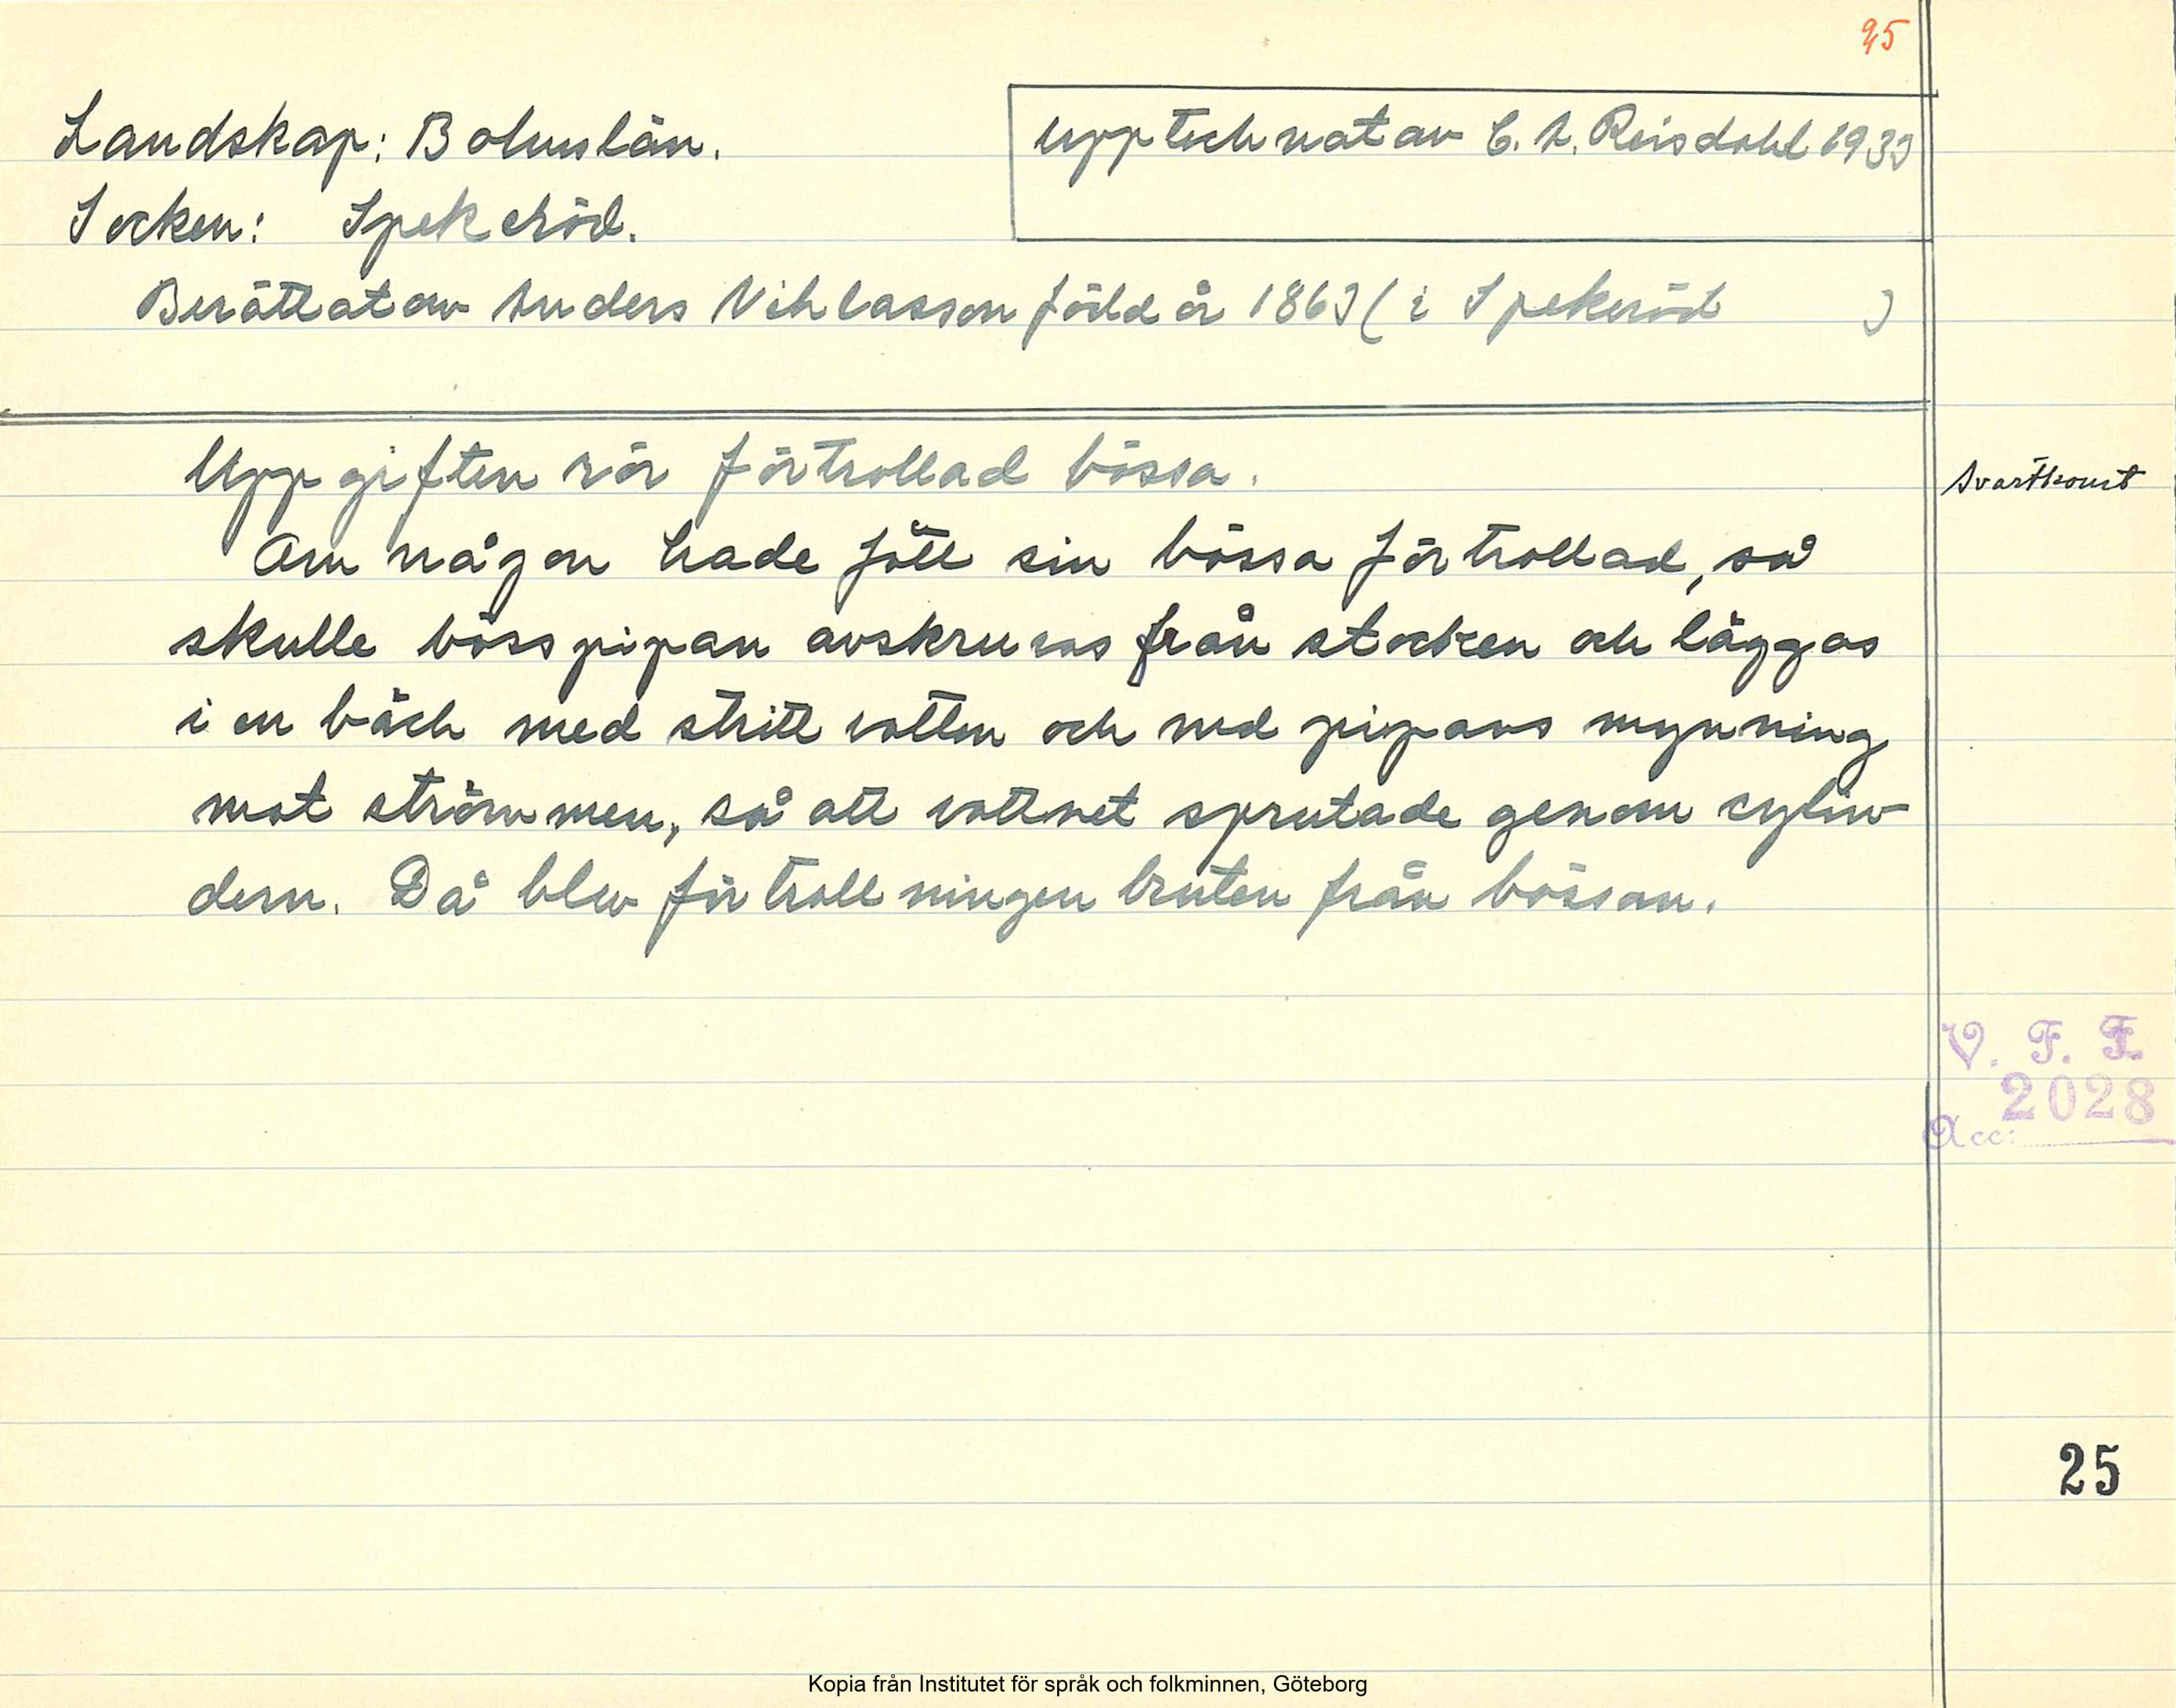 25
Landskap: Bohuslän.
Upptecknat av C. A. Reisdahl 1933
Socken: Spekeröd.
Berättat av Anders Niklasson född år 1863 (i Spekeröd )
Uppgiften rör förtrollad bössa.
Svartkonst
Om någon hade fått sin bössa förtrollad, så
skulle bösspipan avskruvas från stocken och läggas
i en bäck med stritt vatten och med pipans mynning
mot strömmen, så att vattnet sprutade genom cylin-
dern. Då blev förtrollningen bruten från bössan.
V. F. F.
2028
Acc:
25
Kopia från Institutet för språk och folkminnen, Göteborg